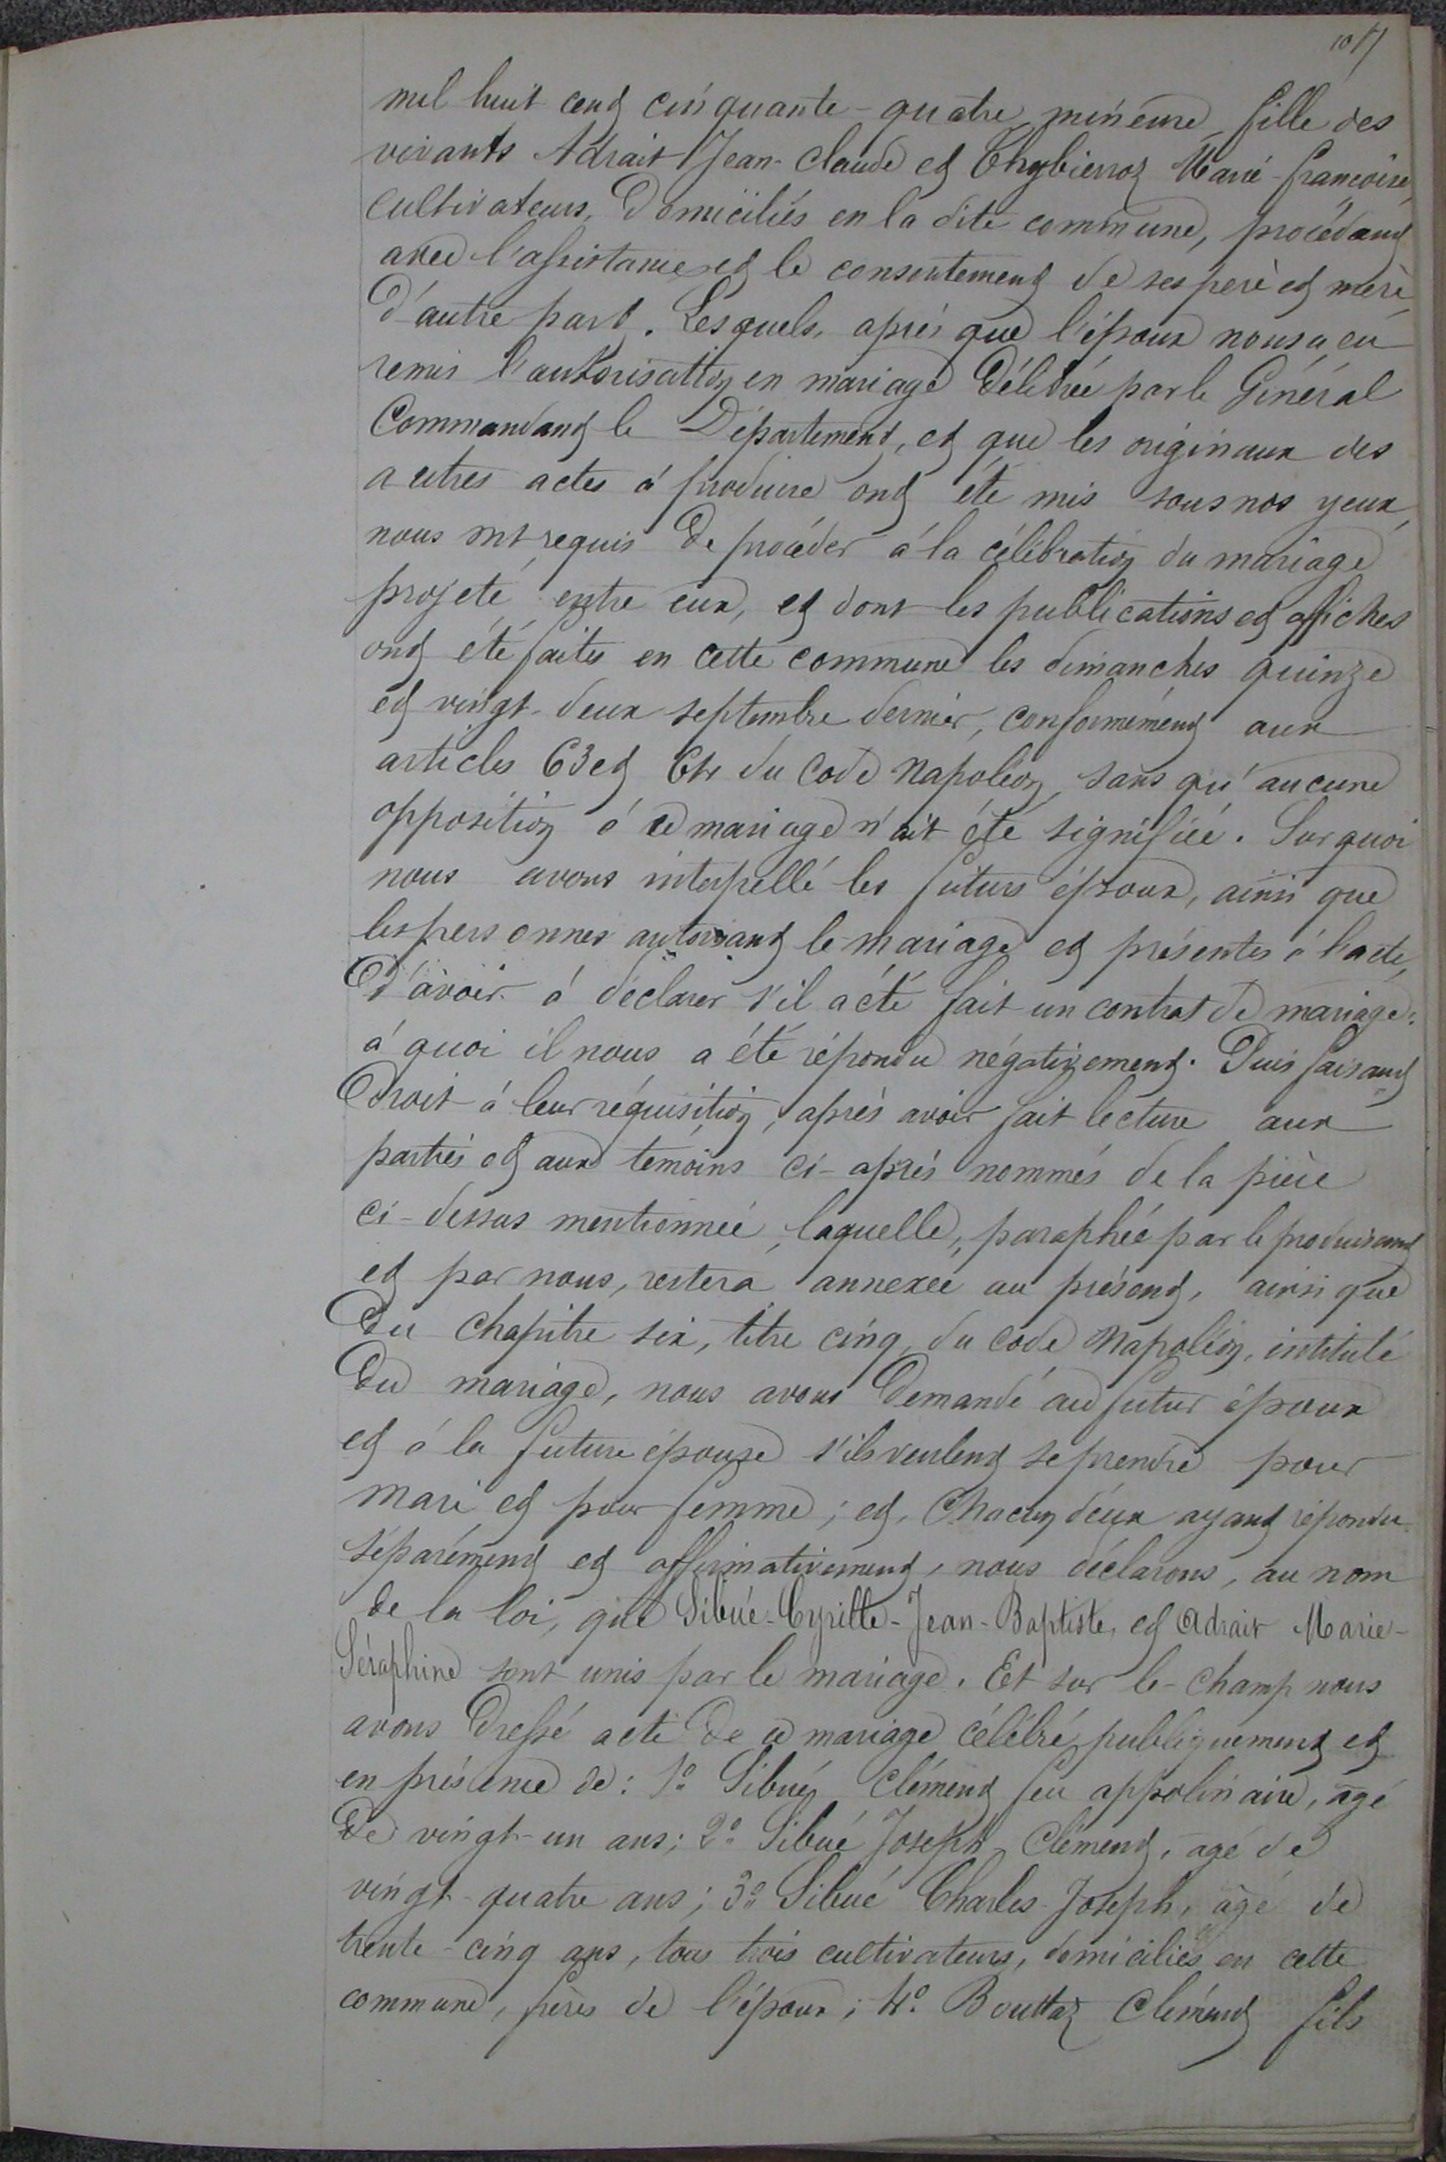 mil huit cent cinquante-quatre, mineure, fille des
vivants Adrait Jean-Claude et Thybierroz Marie-françoise,
cultivateurs, Domiciliés en la dite commune, procédant
avec l'assistance et le consentement de ses père et mère,
D'autre part. Lesquels, après que l'époux nous a eu
remis l'autorisation en mariage Délivrée par le Général
Commandant le Département, et que les originaux des
autres actes à produire ont été mis sous nos yeux,
nous ont requis De procéder à la célébration du mariage
projeté entre eux, et dont les publications et afiches
ont été faites en cette commune les dimanches quinze
et vingt-deux septembre dernier, conformément aux
articles 63 et 64 du Code Napoléon, sans qu'aucune
opposition à ce mariage n'ait été signifiée. Sur quoi
nous avons interpellé les futurs époux, ainsi que
les personnes autorisant le mariage et présentes à l'acte,
D'avoir à déclarer s'il a été fait un contrat de mariage:
à quoi il nous a été répondu négativement. Puis faisant
Droit à leur réquisition, après avoir fait lecture aux
parties et aux témoins ci-après nommés de la pièce
ci-dessus mentionnée, laquelle, paraphée par le produisant
et par nous, restera annexée au présent, ainsi que
Du Chapitre six, titre cinq, du Code Napoléon, intitulé
Du mariage, nous avons Demandé au futur époux
et à la future épouse s'ils veulent se prendre pour
mari et pour femme; et, Chacun d'eux ayant répondu
séparément et affirmativement, nous déclarons, au nom
de la loi, que Sibué-Cyrille-Jean-Baptiste, et Adrait Marie-
Séraphine sont unis par le mariage. Et sur le-champ nous
avons Dressé acte De ce mariage célébré publiquement et
en présence de: 1º Sibué Clément feu appolinaire, âgé
De vingt-un ans; 2º Sibué Joseph Clément, âgé de
vingt-quatre ans; 3º Sibué Charles-Joseph, âgé de
trente-cinq ans, tous trois cultivateurs, domiciliés en cette
commune, frères de l'époux; 4º Bouttaz Clément fils